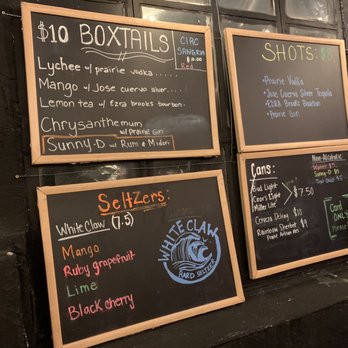 $10 BOXTAILS
Lychee w/ prairie vodka.....
Mango w/ Jose cuervo silver....
Lemon tea w/ Ezra brooks bourbon
Chrysanthemum w/ Prairie Gin
Sunny-D w/ Rum & Midori
CIRC
SANGRIA
$10.00
Red
SHOTS: $8
• Prairie Vodka
• Jose Cuervo Silver Tequila
• EZRA Brooks Bourbon
• Prairie Gin
SELTZERS:
White Claw (7.5)
Mango
Ruby grapefruit
Lime
Black cherry
WHITE CLAW
HARD SELTZER
Cans:
Bud Light
Coors Light
Miller Lite
$7.50
Rainbow Sherbet $9
Non-Alcoholic
Water $5